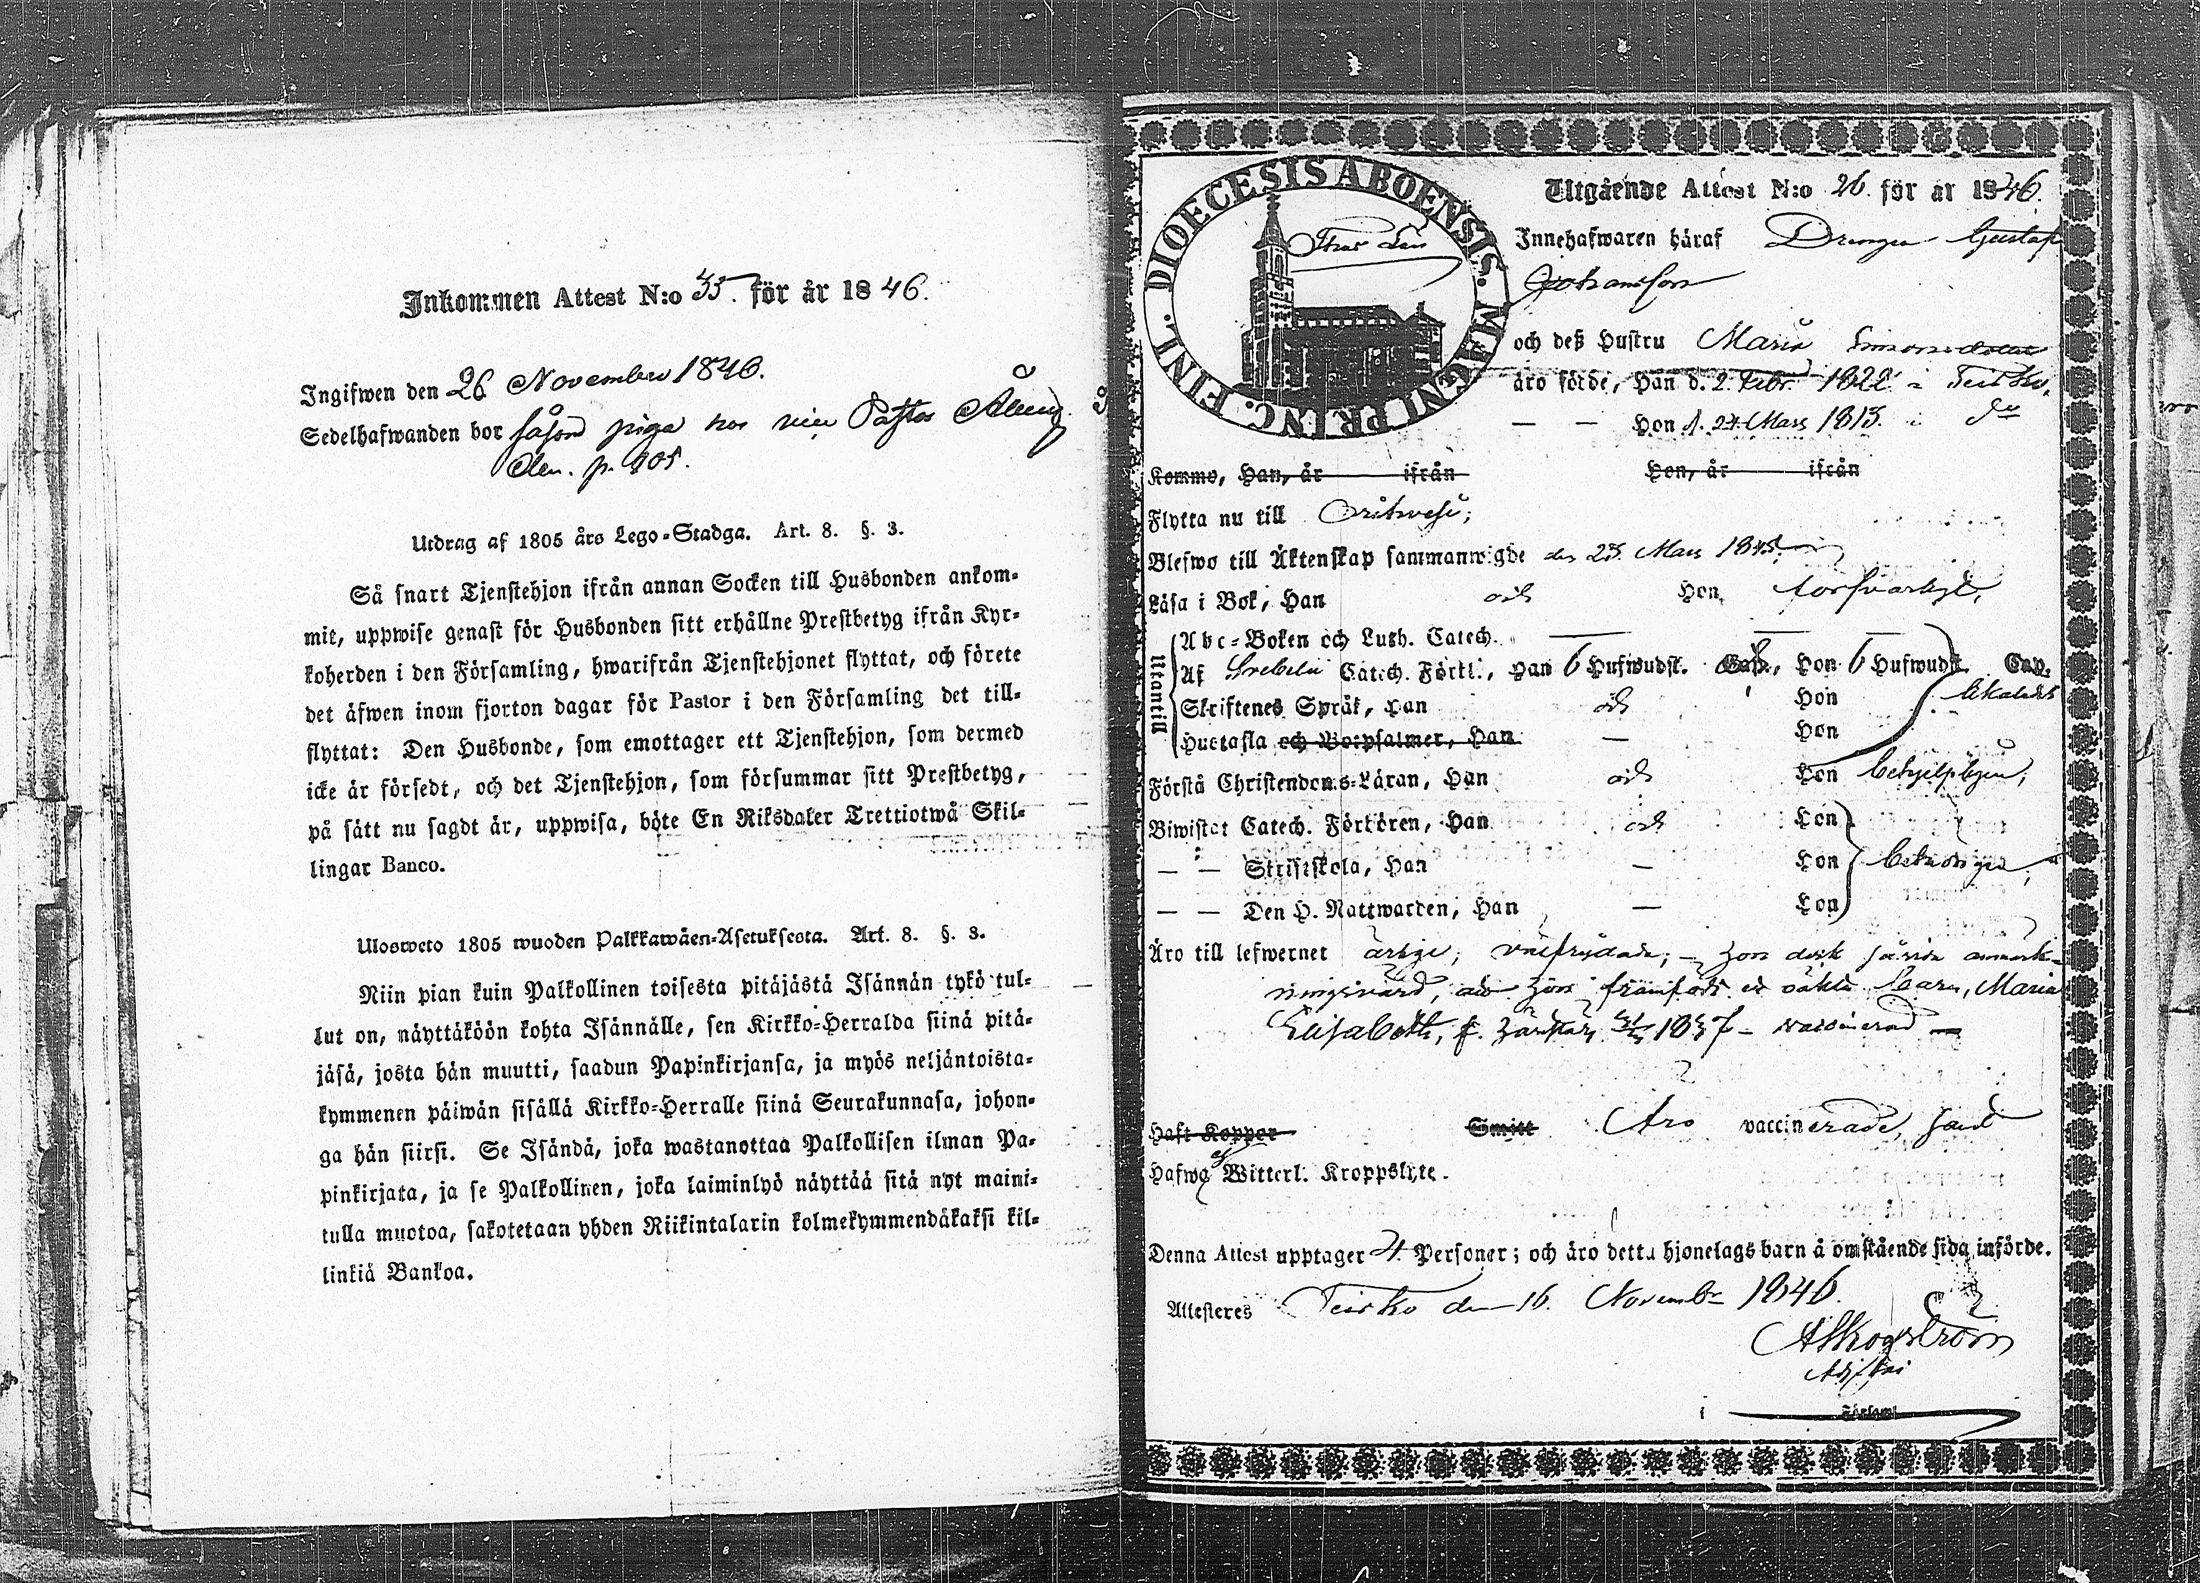 Inkommen Attest N:o 35. för år 1846.
Ingifwen den 26 November 1846.
Sedelhafwanden bor såsom piga hos vice Pastor
p. 105.
Utdrag af 1805 års Lego-Stadga. Art. 8. §. 3.
Så snart Tjenstehjon ifrån annan Socken till Husbonden ankom-
mit, uppwise genast för Husbonden sitt erhållne Prestbetyg ifrån Kyr-
koherden i den Församling, hwarifrån Tjenstehjonet flyttat, och förete
det äfwen inom fjorton dagar för Pastor i den Församling det till-
flyttat: Den Husbonde, som emottager ett Tjenstehjon, som dermed
icke är försedt, och det Tjenstehjon, som försummar sitt Prestbetyg,
på sätt nu sagdt är, uppwisa, böte En Riksdaler Trettiotwå Skil-
lingar Banco.
Ulosweto 1805 wuoden Palkkawäen-Asetuksesta. Art. 8. §. 3.
Niin pian kuin Palkollinen toisesta pitäjästä Isännän tykö tul-
lut on, näyttäköön kohta Isännälle, sen Kirkko-Herralda siinä pitä-
jäsä, josta hän muutti, saadun Papinkirjansa, ja myös neljäntoista-
kymmenen päiwän sisällä Kirkko-Herralle siinä Seurakunnasa, johon-
ga hän siirsi. Se Isändä, joka wastanottaa Palkollisen ilman Pa-
pinkirjata, ja se Palkollinen, joka laiminlyö näyttää sitä nyt maini-
tulla muotoa, sakotetaan yhden Riikintalarin kolmekymmendäkaksi kil-
linkiä Bankoa.
DIOECESIS ABOENSIS. MAGNI PRINC. FINL.
Utgående Attest N:o 26. för år 1846.
Innehafwaren häraf Drengen Gustaf
Johansson
och deß Hustru Maria Simonsdotter
äro födde, Han d. 2. Febr. 1822 i Teisko,
— — Hon d. 24 Mars 1813. i do
Komme, Han, år ifrån Hon, år ifrån
Flytta nu till Orihvesi;
Blefwo till Äktenskap sammanwigde den 25. Mars 1845.
Läsa i Bok, Han och Hon, försvarligt,
Utantill
Abc-Boken och Luth. Catech. — — —
Af Svebelii Catech. Förkl., Han 6 Hufwudst. Cap., Hon 6 Hufwudst. Cap.
Skriftenes Språk, Han och Hon
Hustafla och Botpsalmer, Han — Hon
Förstå Christendoms-Läran, Han och Hon behjelpligen;
Biwistat Catech. Förhören, Han och Hon
— — Skriftskola, Han — Hon
— — Den H. Nattwarden, Han — Hon
Äro till lefwernet ärlige, välfrejdade; — Hon dock såvida anmärk-
ningsvärd, att Hon framfödt ett oäkta barn, Maria
Elisabeth, 1837 — vaccinerad —
Haft Koppor Smitt Äro vaccinerade, samt
Hafwa ej Witterl. Kroppslyte.
Denna Attest upptager 4. Personer; och äro detta hjonelags barn å omstående sida införde.
Attesteres Teisko den 16. November 1846.
i Förfaml